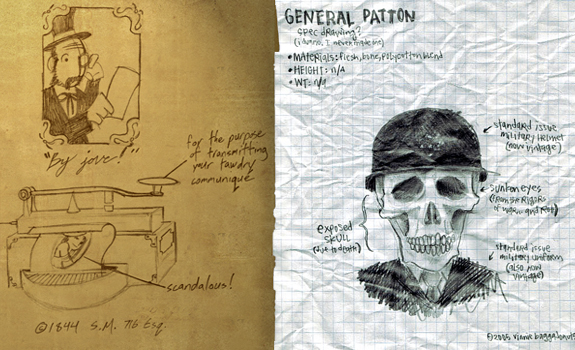 "By jove!"
for the purpose
of transmitting
your tawdry
communique
scandalous!
©1844 S.M. 716 Esq.
GENERAL PATTON
spec drawing?
(i dunno, I never made one)
• MATERIALS: flesh, bone, polycotton blend
• HEIGHT: n/a
• WT: n/a
standard issue
military helmet
(now vintage)
sunken eyes
(from the rigors
of
exposed
skull
(due to death)
standard issue
military uniform
(also now
vintage)
©2005